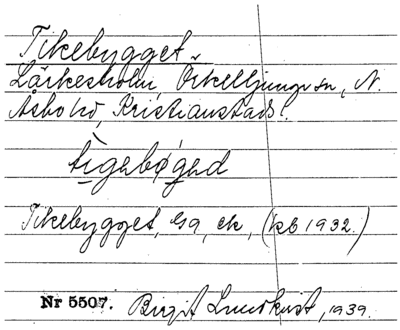 Tikebygget
Lärkesholm, Örkelljunga sn, N.
Åsbo hd, Kristianstads l.
tìgabø̀gad
Tikebygget, lg, ek, (kb 1932.)
Nr 5507. Birgit Lundkvist, 1939.